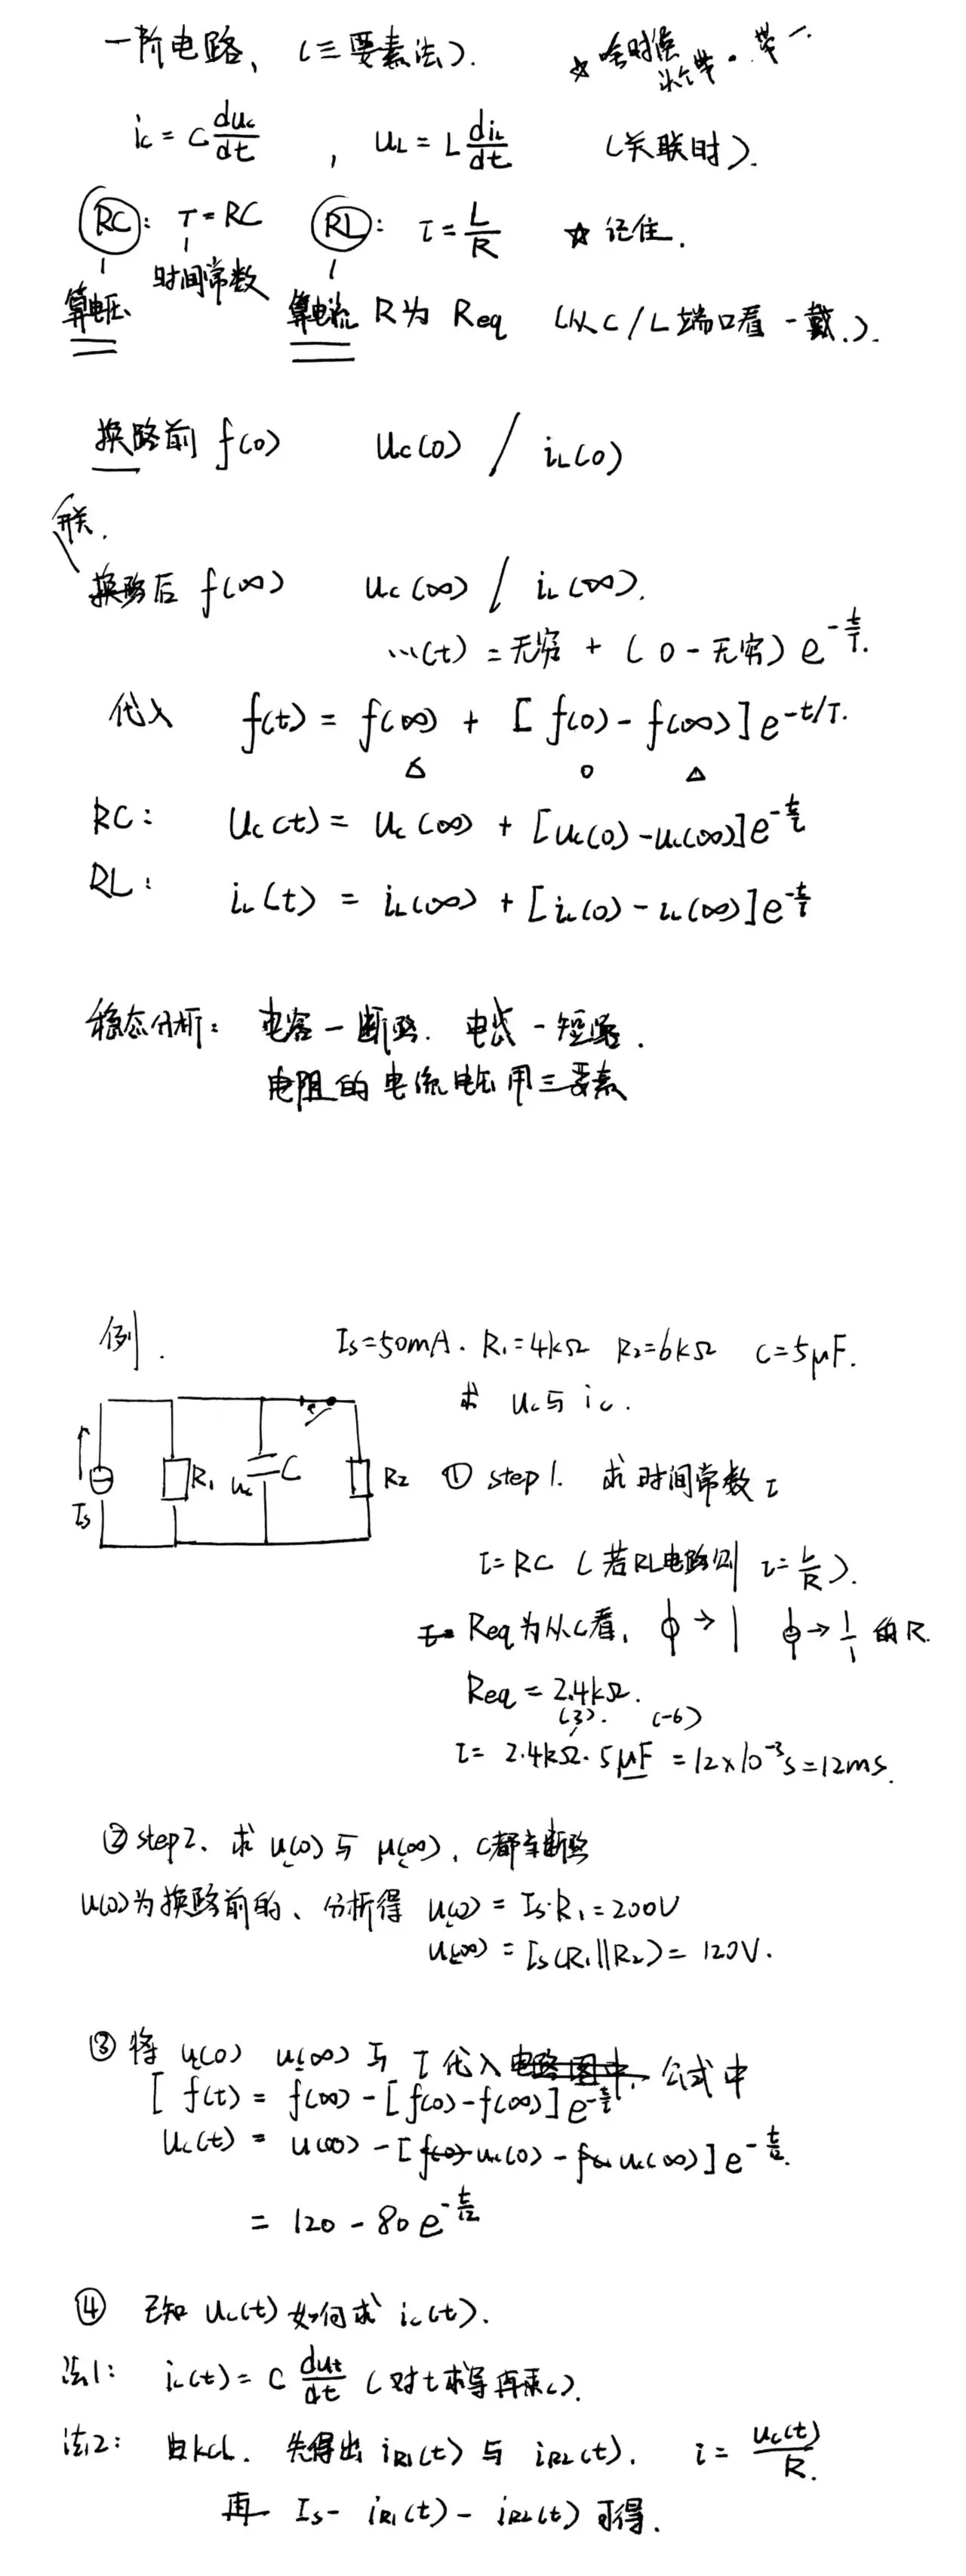 一阶电路、（三要素法）. ☆ 啥时候 带 · 带一
ic = C duc/dt , uL = L diL/dt （关联时）.
RC: τ = RC RL: τ = L/R ☆ 记住.
算电压 时间常数 算电流 R为 Req （从C/L端口看一戴.）.
换路前 f(0) uc(0) / iL(0)
开关.
换路后 f(∞) uc(∞) / iL(∞).
...(t) = 无穷 + (0 - 无穷) e^-t/τ.
代入 f(t) = f(∞) + [f(0) - f(∞)] e^-t/τ.
△ ○ △
RC: uc(t) = uc(∞) + [uc(0) - uc(∞)] e^-t/τ
RL: iL(t) = iL(∞) + [iL(0) - iL(∞)] e^-t/τ
稳态分析: 电容-断路. 电感-短路.
电阻的电流电压用三要素
例. Is=50mA. R₁=4kΩ R₂=6kΩ C=5μF.
求 uc与ic.
Is R₁ uc C R₂
① step1. 求时间常数τ
τ=RC （若RL电路则 τ=L/R）.
Req为从C看, → → 的R.
Req = 2.4kΩ.
(3). (-6)
τ= 2.4kΩ·5μF = 12×10⁻³s=12ms.
② step2. 求 uc(0) 与 uc(∞), C都当断路
u(0)为换路前的、分析得 uc(0) = Is·R₁ = 200V
uc(∞) = Is(R₁||R₂) = 120V.
③ 将 uc(0) uc(∞) 与 τ 代入电路图中. 公式中
[ f(t) = f(∞) - [f(0) - f(∞)] e^-t/τ
uc(t) = u(∞) - [f(0) uc(0) - uc(∞)] e^-t/12.
= 120 - 80 e^-t/12
④ 已知 uc(t) 如何求 ic(t).
法1: ic(t) = C dut/dt （对t求导再乘C）.
法2: 由kcl. 先得出 iR1(t) 与 iR2(t). i = uc(t)/R.
再 Is - iR1(t) - iR2(t) 可得.